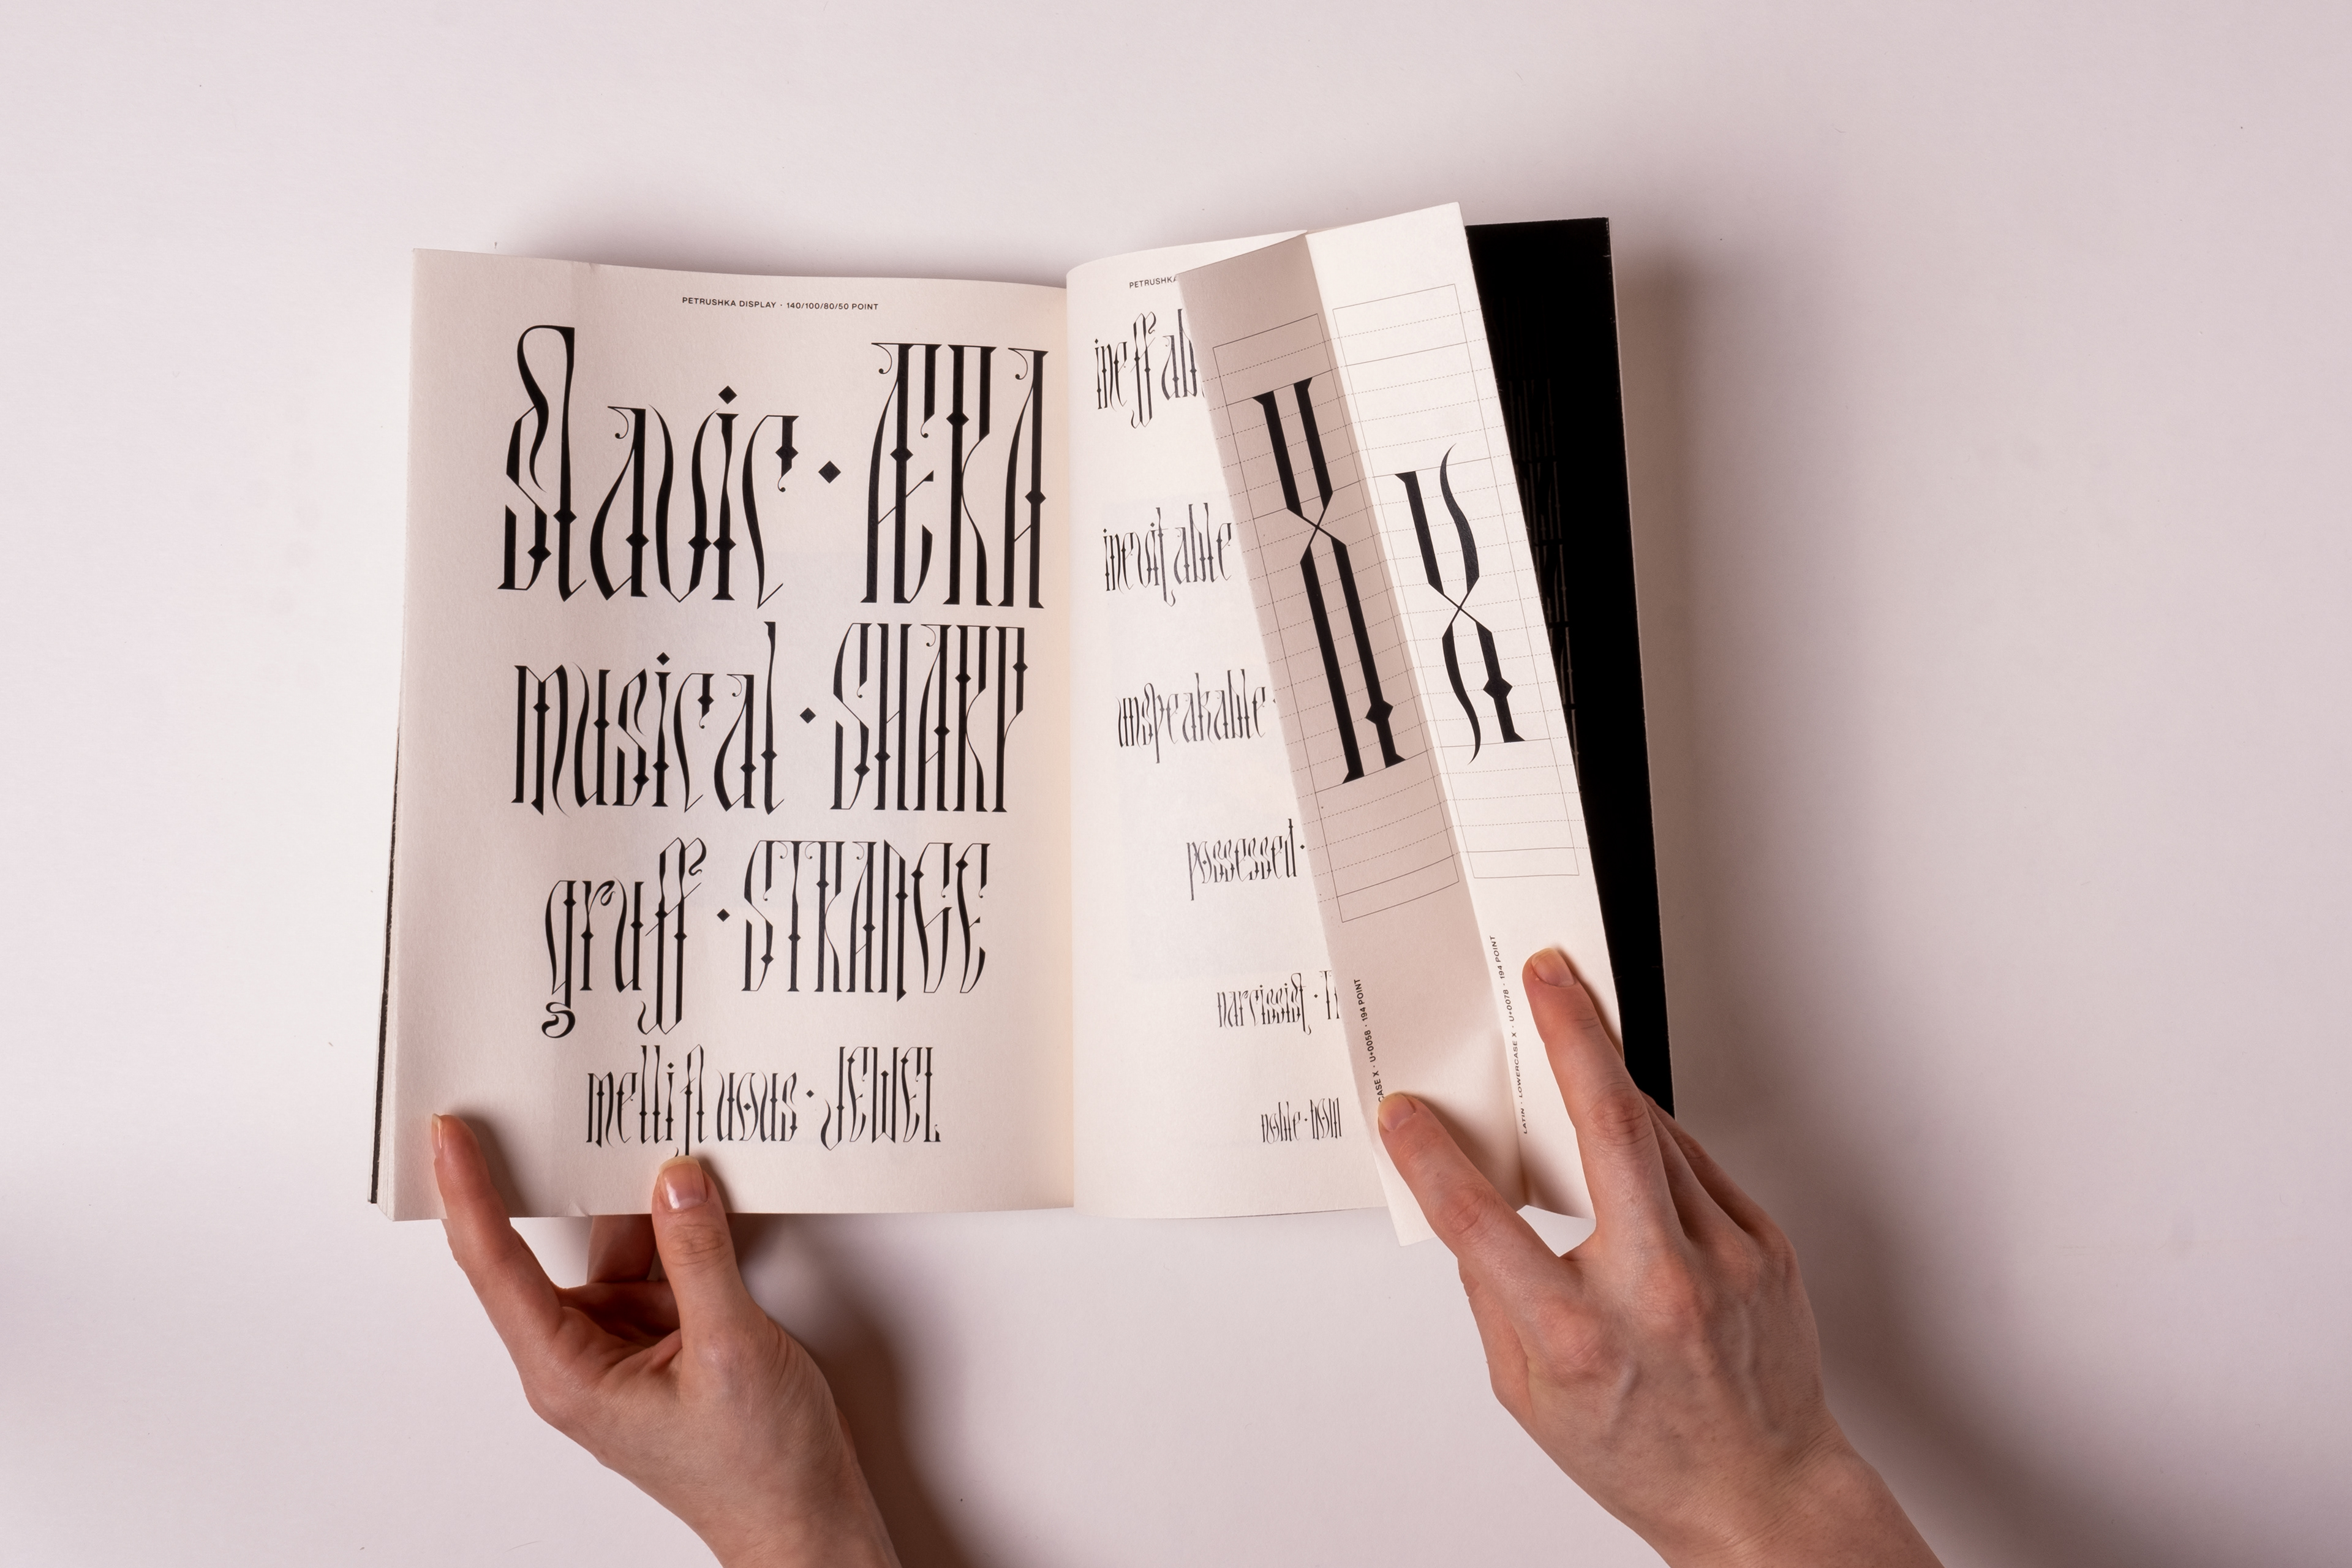 PETRUSHKA DISPLAY · 140/100/80/50 POINT
Slavic · ÆRA
musical · SHARP
gruff · STRANGE
mellifluous · JEWEL
PETRUSHKA
ineffab
inevitable
unspeakable ·
possessed ·
narcissist ·
noble ·
X
CASE X · U+0058 · 194 POINT
x
LATIN · LOWERCASE X · U+0078 · 194 POINT